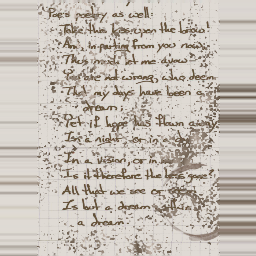 Poe's poetry as well:
Take this kiss upon the brow!
And, in parting from you now,
Thus much let me avow
You are not wrong, who deem
That my days have been a
dream;
Yet if hope has flown away
In a night, or in a day
In a vision, or in
Is it therefore the less gone?
All that we see or seem
Is but a dream within
a dream